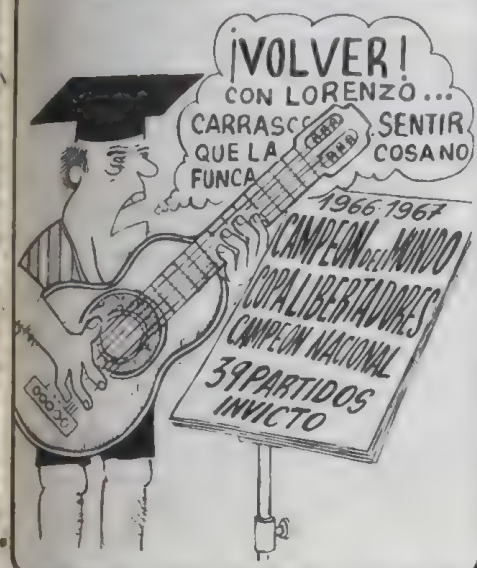 ¡VOLVER!
CON LORENZO...
CARRASCO SENTIR
QUE LA COSA NO
FUNCA
1966-1967
CAMPEON DEL MUNDO
COPA LIBERTADORES
CAMPEON NACIONAL
39 PARTIDOS
INVICTO